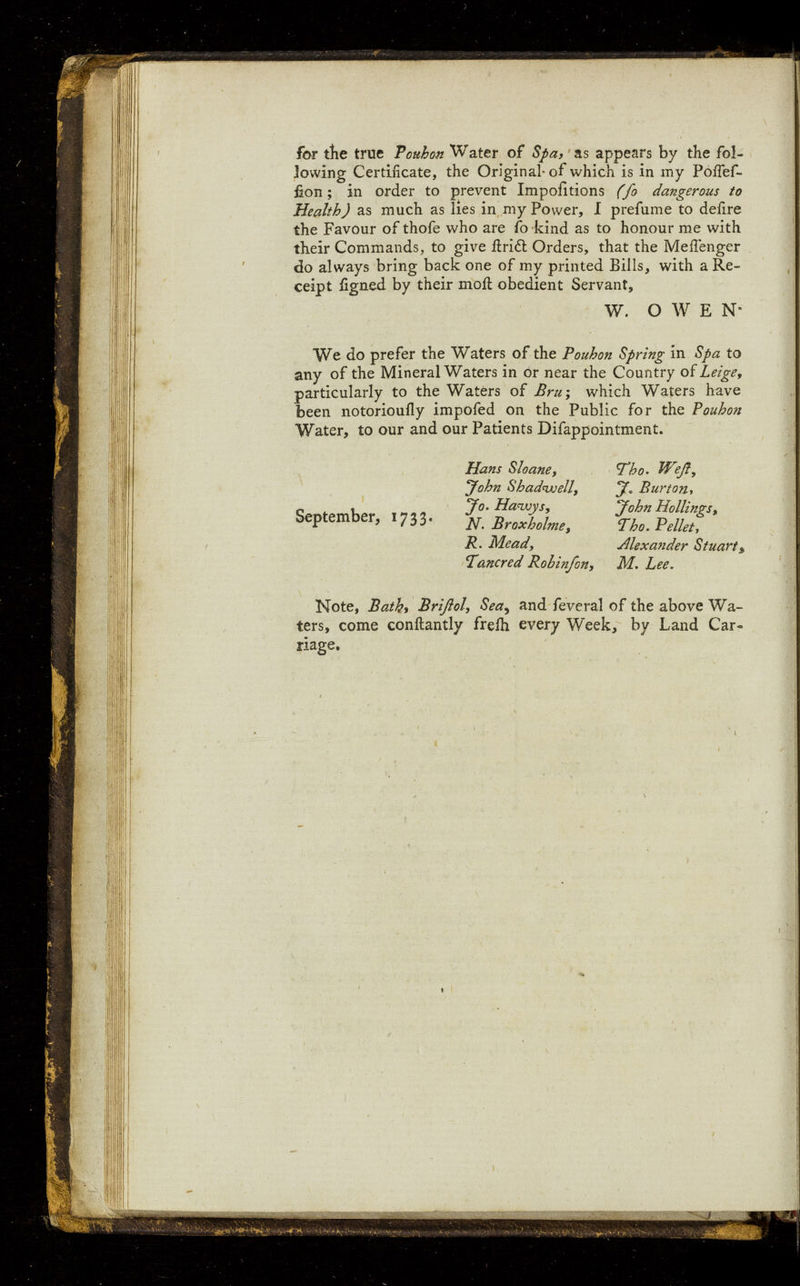 for the true Pouhon Water of Spa, as appears by the fol-
lowing Certificate, the Original of which is in my Poſſeſ-
ſion; in order to prevent Impoſitions (ſo dangerous to
Health) as much as lies in my Power, I preſume to deſire
the Favour of thoſe who are ſo kind as to honour me with
their Commands, to give ſtrict Orders, that the Meſſenger
do always bring back one of my printed Bills, with a Re-
ceipt ſigned by their moſt obedient Servant,
W. OWEN.
We do prefer the Waters of the Pouhon Spring in Spa to
any of the Mineral Waters in or near the Country of Leige,
particularly to the Waters of Bru; which Waters have
been notoriouſly impoſed on the Public for the Pouhon
Water, to our and our Patients Diſappointment.
September, 1733.
Hans Sloane,
John Shadwell,
Jo. Hawys,
N. Broxholme,
R. Mead,
Tancred Robinſon,
Tho. Weſt,
J. Burton,
John Hollings,
Tho. Pellet,
Alexander Stuart,
M. Lee.
Note, Bath, Briſtol, Sea, and ſeveral of the above Wa-
ters, come conſtantly freſh every Week, by Land Car-
riage.